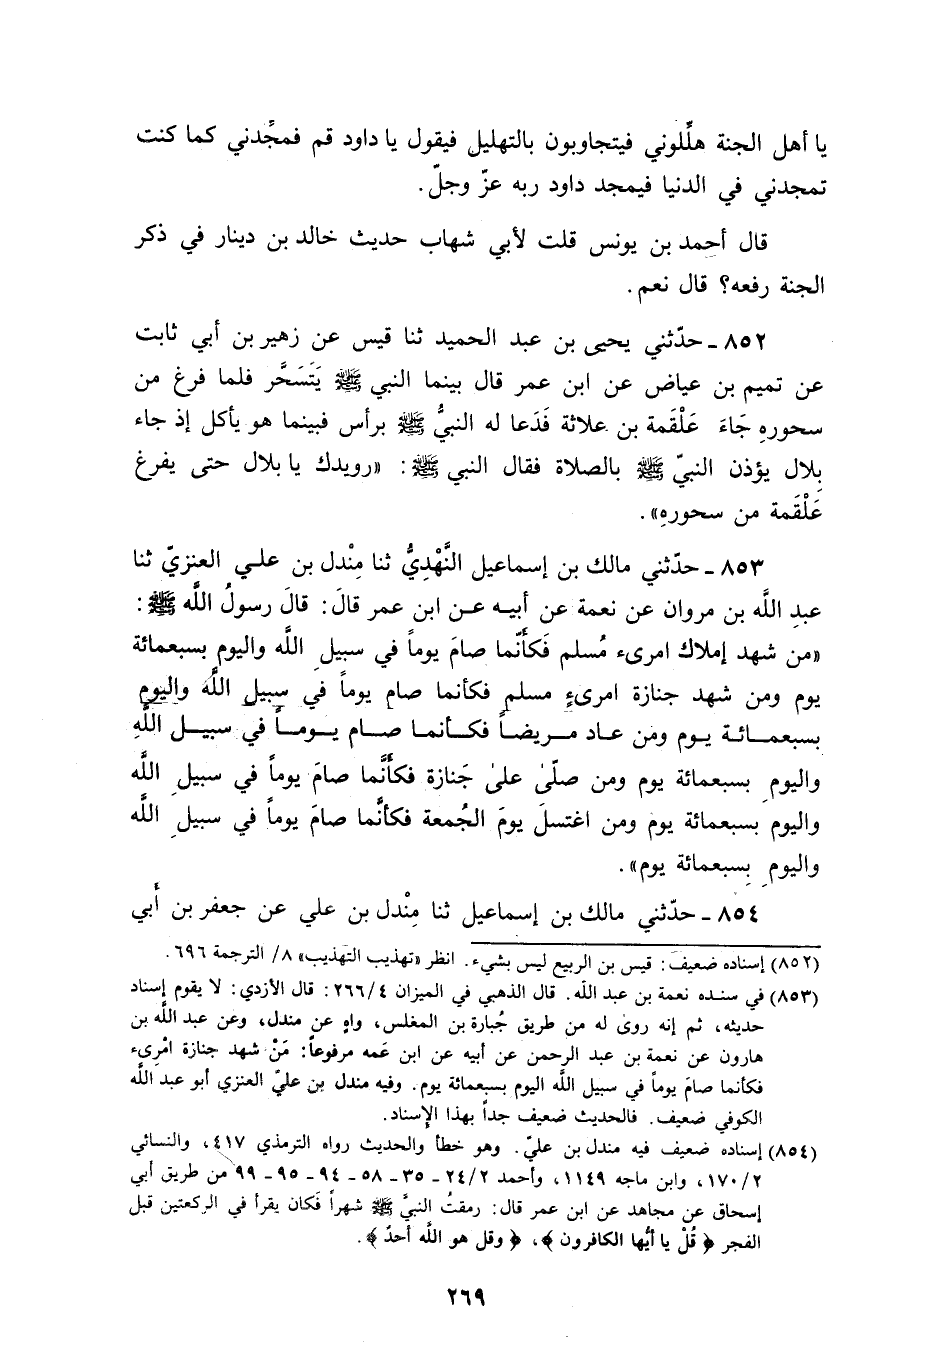 يا أهل الجنة هلِّلوني فيتجاوبون بالتهليل فيقول يا داود قم فمجِّدني كما كنت
تمجدني في الدنيا فيمجد داود ربه عزّ وجلّ.
قال أحمد بن يونس قلت لأبي شهاب حديث خالد بن دينار في ذكر
الجنة رفعه؟ قال نعم.
٨٥٢ ـ حدّثني يحيى بن عبد الحميد ثنا قيس عن زهير بن أبي ثابت
عن تميم بن عياض عن ابن عمر قال بينما النبي ﷺ يَتَسَحَّر فلما فرغ من
سحوره جَاءَ عَلْقَمة بن علاثة فَدَعا له النبيُّ ﷺ برأس فبينما هو يأكل إذ جاء
بِلال يؤذن النبيّ ﷺ بالصلاة فقال النبي ﷺ: «رويدك يا بلال حتى يفرغ
عَلْقَمة من سحورهِ».
٨٥٣ ـ حدّثني مالك بن إسماعيل النَّهْدِيُّ ثنا مِنْدل بن علي العنزيّ ثنا
عبدِ اللَّه بن مروان عن نعمة عن أبيه عن ابن عمر قالَ: قالَ رسولُ اللَّه ﷺ:
«من شهد إملاك امرىء مُسلم فَكأنّما صامَ يوماً في سبيلِ اللَّه واليوم بسبعمائة
يوم ومن شهد جنازة امرىءٍ مسلم فكأنما صام يوماً في سبيلِ اللَّه واليوم
بسبعمائة يوم ومن عاد مريضاً فكأنما صام يوماً في سبيل اللَّهِ
واليومِ بسبعمائة يوم ومن صلّىٰ علىٰ جَنازة فكأنَّما صامَ يوماً في سبيلِ اللَّه
واليوم بسبعمائة يوم ومن اغتسلَ يومَ الجُمعة فكأنَّما صامَ يوماً في سبيلِ اللَّه
واليومِ بِسبعمائة يوم».
٨٥٤ ـ حدّثني مالك بن إسماعيل ثنا مِنْدل بن علي عن جعفر بن أبي
(٨٥٢) إسناده ضعيف: قيس بن الربيع ليس بشيء. انظر «تهذيب التهذيب» ٨/ الترجمة ٦٩٦.
(٨٥٣) في سنده نعمة بن عبد اللَّه. قال الذهبي في الميزان ٢٦٦/٤: قال الأزدي: لا يقوم إسناد
حديثه، ثم إنه روىٰ له من طريق جُبارة بن المغلس، واهٍ عن مندل، وعن عبد اللَّه بن
هارون عن نعمة بن عبد الرحمن عن أبيه عن ابن عَمه مرفوعاً: مَنْ شهد جنازة امْرِىء
فكأنما صامَ يوماً في سبيل اللَّه اليوم بسبعمائة يوم. وفيه مندل بن عليّ العنزي أبو عبد اللَّه
الكوفي ضعيف. فالحديث ضعيف جداً بهذا الإسناد.
(٨٥٤) إسناده ضعيف فيه مندل بن عليّ. وهو خطأ والحديث رواه الترمذي ٤١٧، والنسائي
١٧٠/٢، وابن ماجه ١١٤٩، وأحمد ٢٤/٢ ـ ٣٥ ـ ٥٨ ـ ٩٤ ـ ٩٥ ـ ٩٩ من طريق أبي
إسحاق عن مجاهد عن ابن عمر قال: رمقتُ النبيَّ ﷺ شهراً فَكان يقرأ في الركعتين قبل
الفجر ﴿قُلْ يا أيُّها الكافرون﴾، ﴿وقل هو اللَّه أحدٌ﴾.
٢٦٩